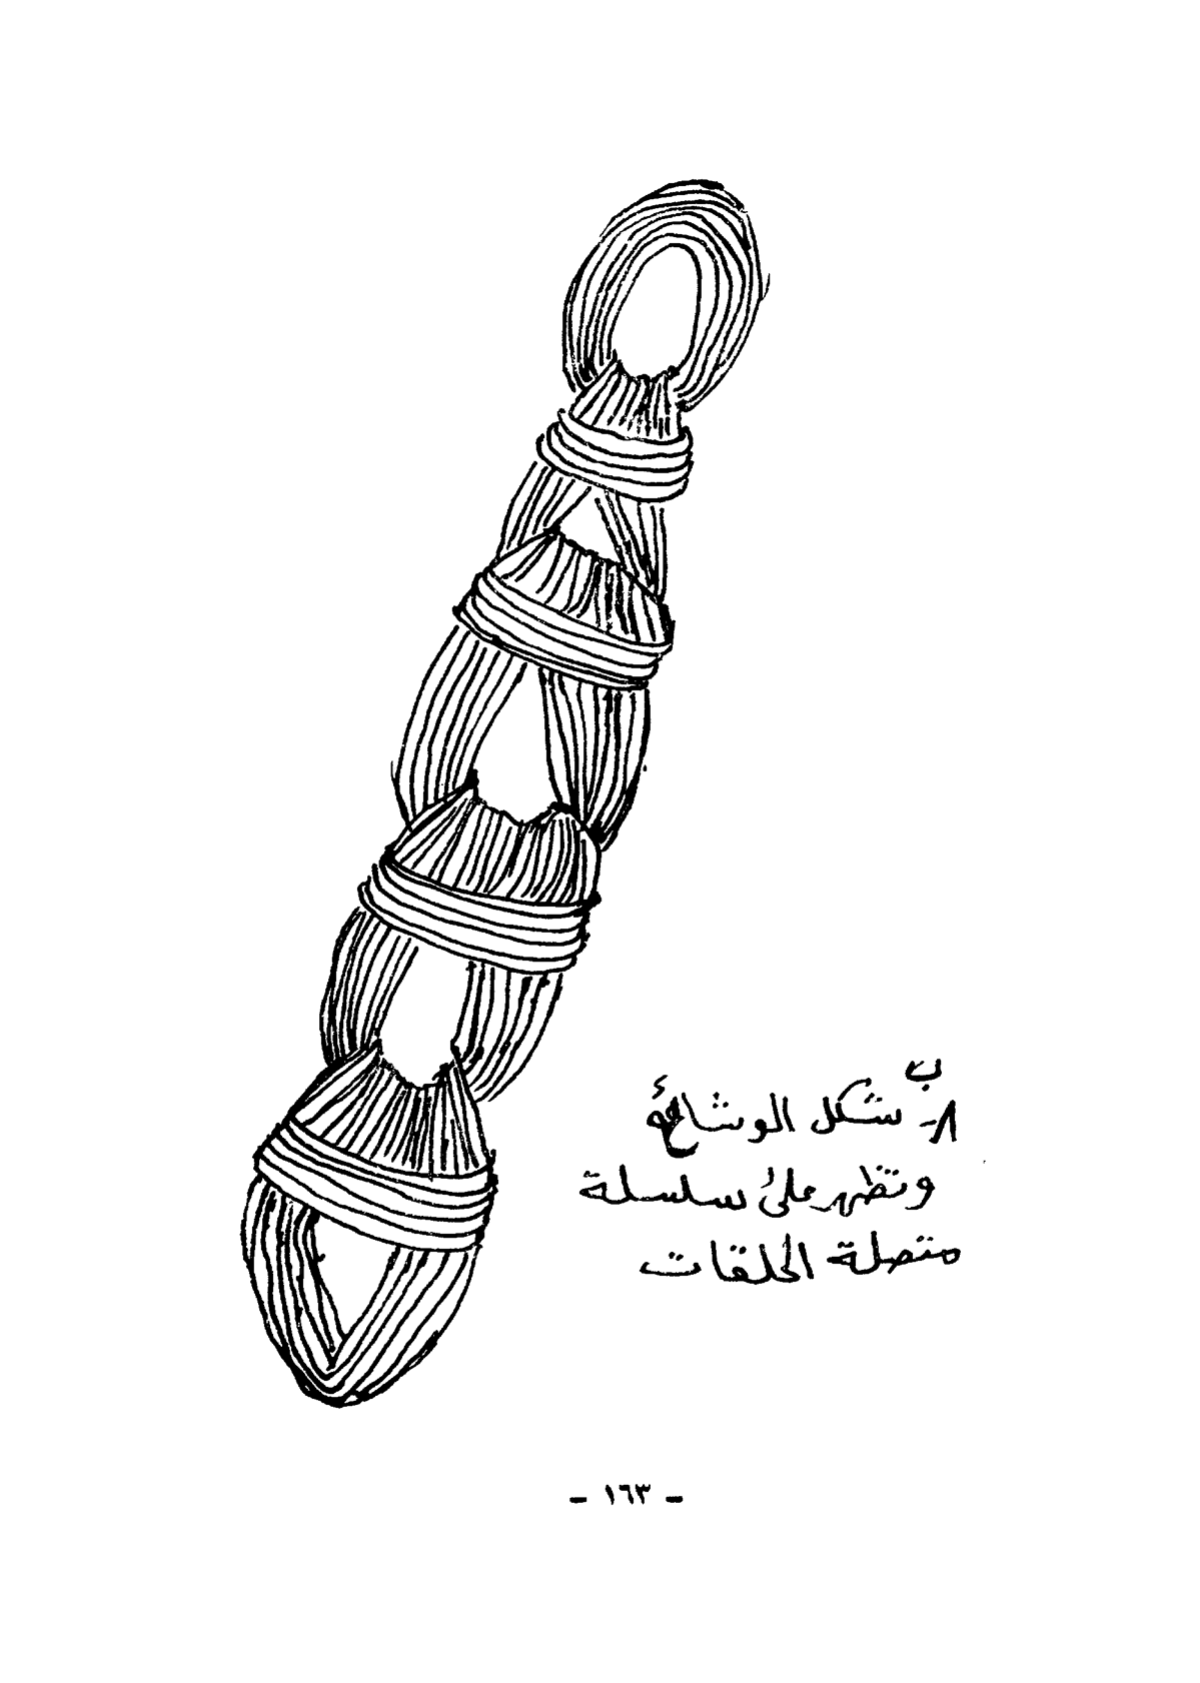 ب
٨- شكل الوشائع
وتظهر على سلسلة
متصلة الحلقات
- ١٦٣ -